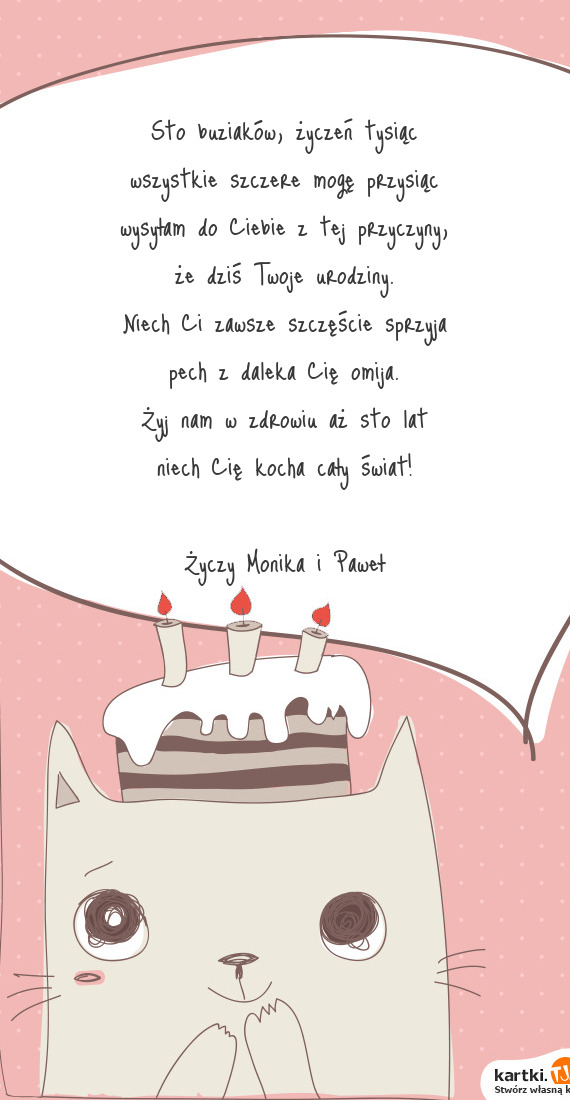 Sto buziaków, życzeń tysiąc
wszystkie szczere mogę przysiąc
wysyłam do Ciebie z tej przyczyny,
że dziś Twoje urodziny.
Niech Ci zawsze szczęście sprzyja
pech z daleka Cię omija.
Żyj nam w zdrowiu aż sto lat
niech Cię kocha cały świat!
Życzy Monika i Paweł
kartki.TJ
Stwórz własną k